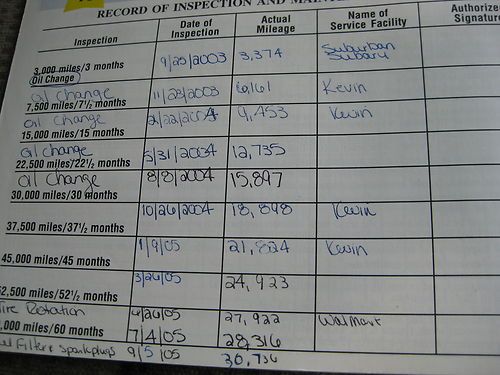 RECORD OF INSPECTION AND
Inspection Date of Inspection Actual Mileage Name of Service Facility Authorize Signatur
3,000 miles/3 months 9/25/2003 3,374 Suburban Subaru
Oil Change
oil change 11/23/2003 6,161 Kevin
7,500 miles/7½ months
oil change 2/22/2004 9,453 Kevin
15,000 miles/15 months
oil change 5/31/2004 12,735
22,500 miles/22½ months
oil change 8/8/2004 15,897
30,000 miles/30 months
10/26/2004 18,898 Kevin
37,500 miles/37½ months
1/9/05 21,824 Kevin
45,000 miles/45 months
3/26/05 24,923
2,500 miles/52½ months
Tire Rotation 6/26/05 27,922 Walmart
,000 miles/60 months 7/4/05 28,316
Filter + sparkplugs 9/5/05 30,736